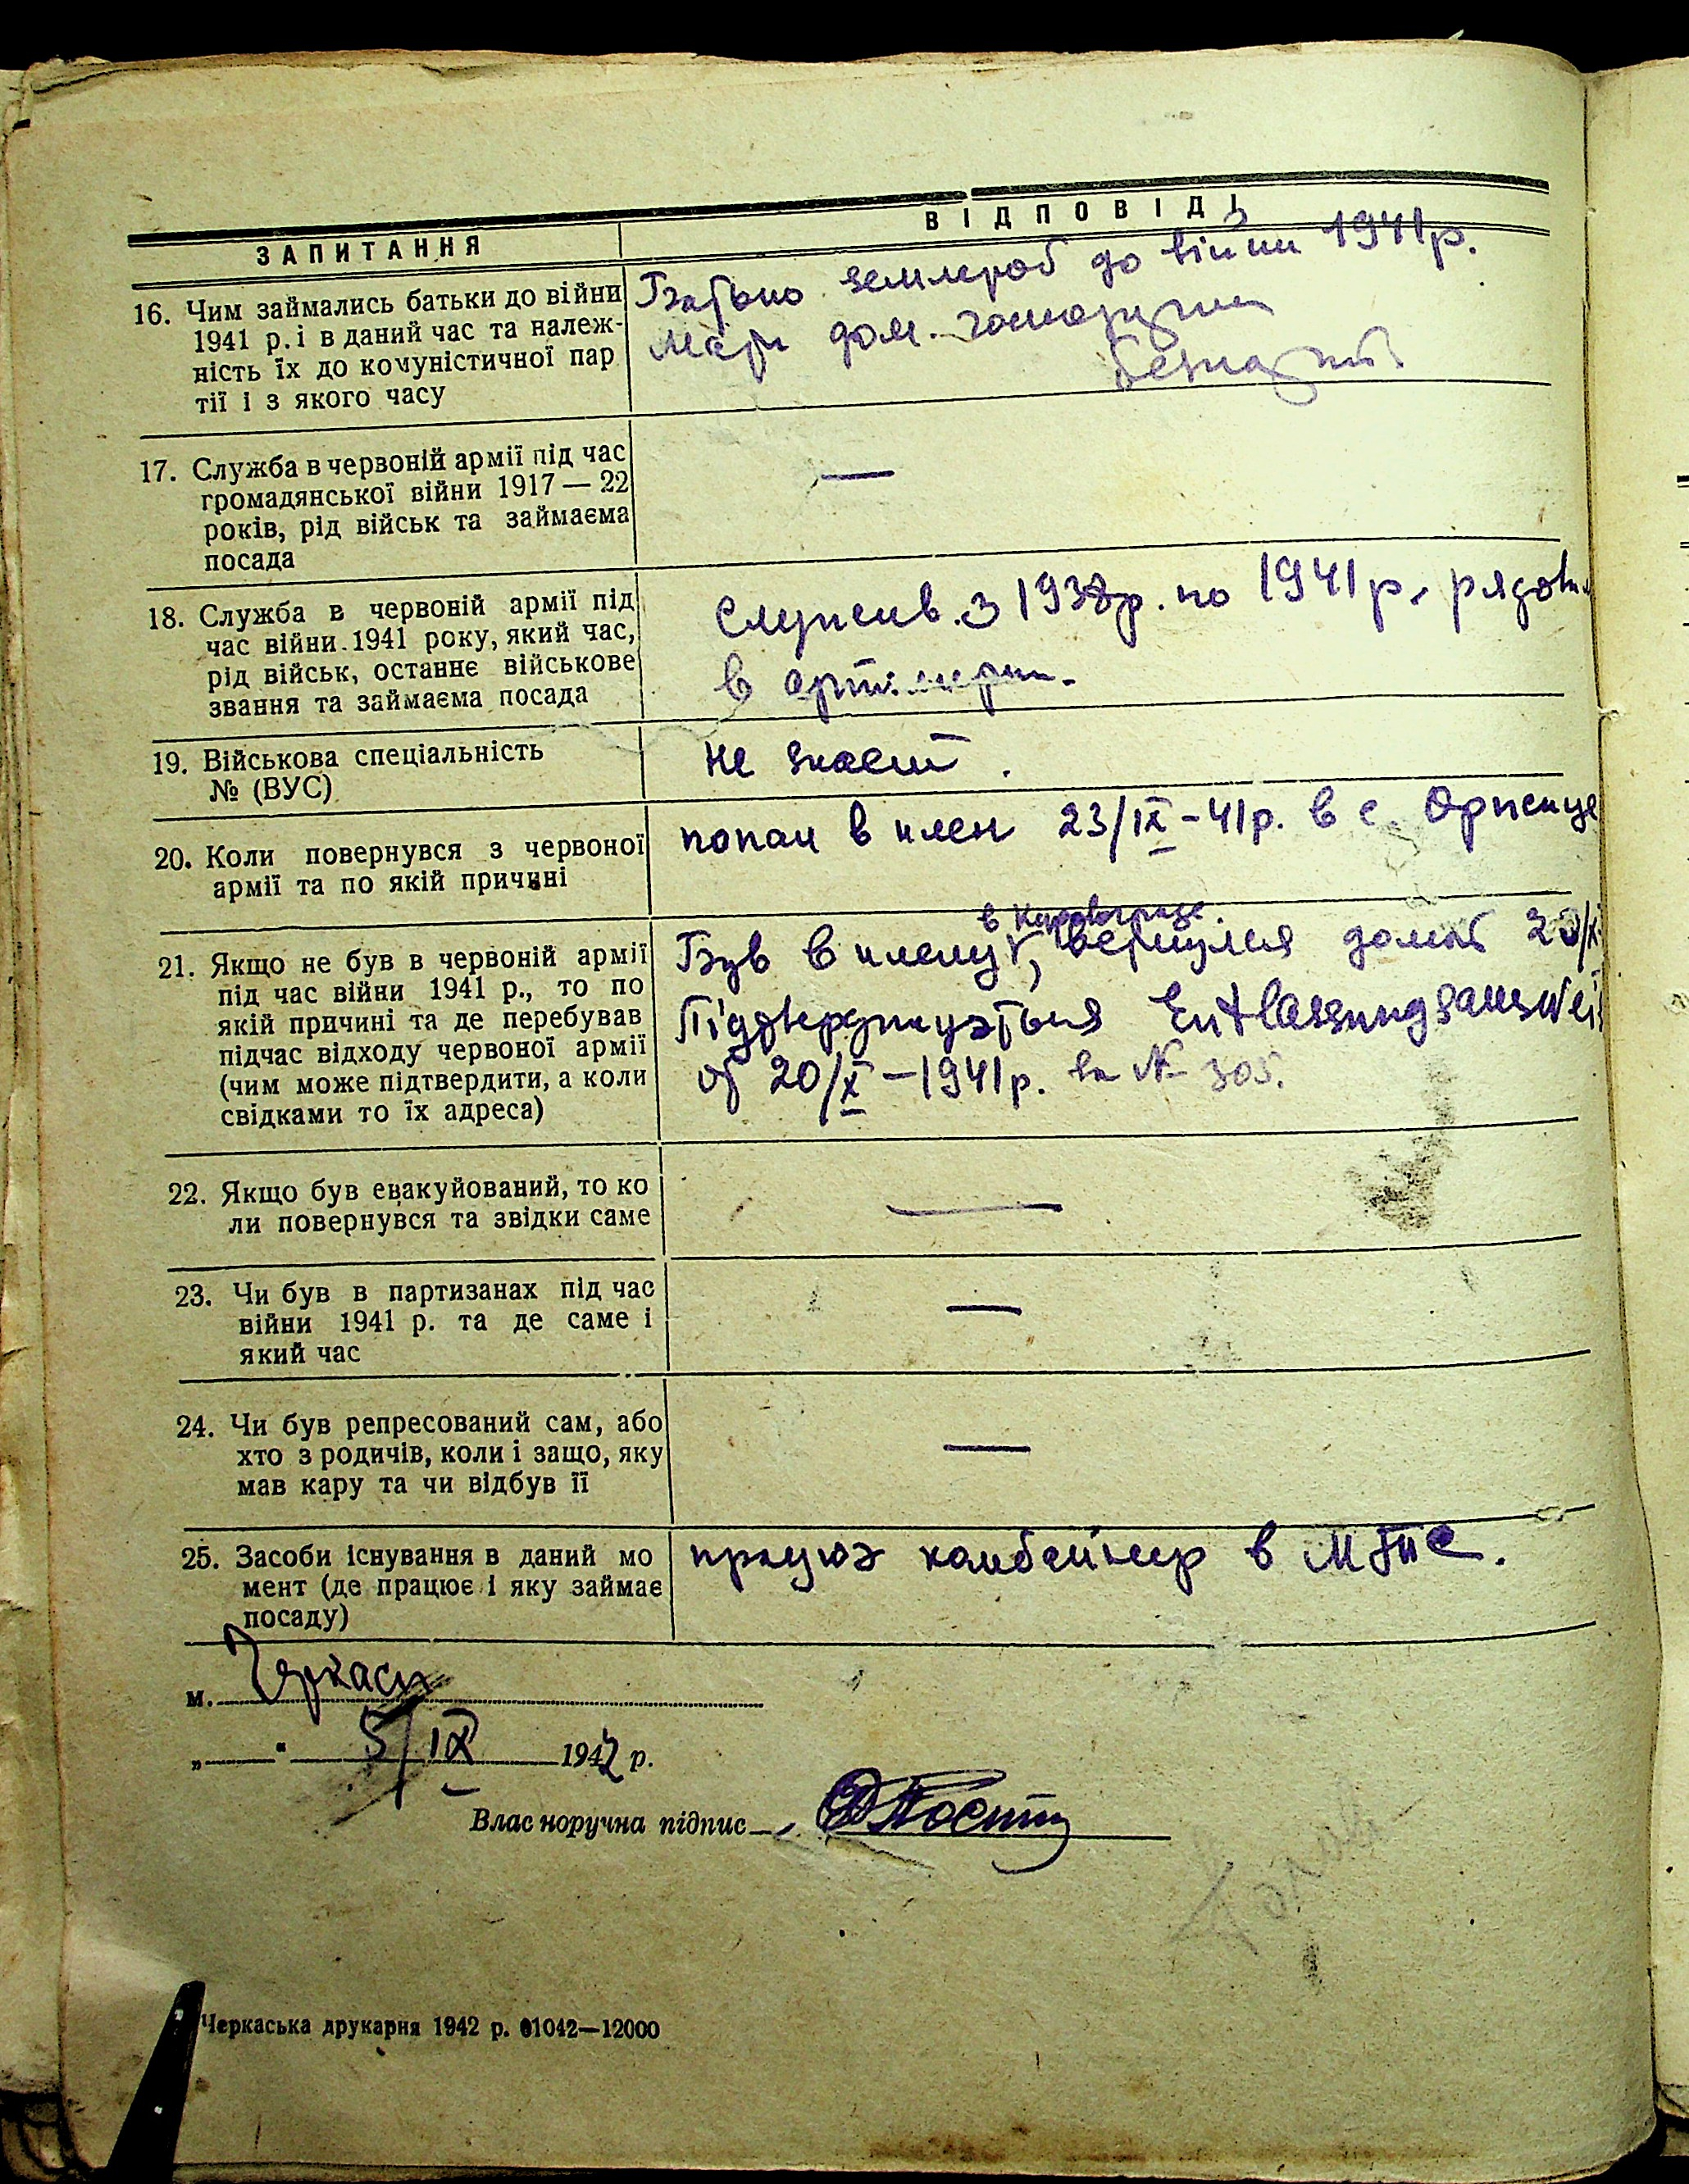 ЗАПИТАННЯ
ВІДПОВІДІ
16. Чим займались батьки до війни
1941 р. і в даний час та належ-
ність їх до комуністичної пар
тії і з якого часу
Батько землероб до війни 1941 р.
Мати дом. господарка
безпартій.
17. Служба в червоній армії під час
громадянської війни 1917 — 22
років, рід військ та займаєма
посада
—
18. Служба в червоній армії під
час війни 1941 року, який час,
рід військ, останнє військове
звання та займаєма посада
Служив з 1938 р. по 1941 р, рядов
в артилерии.
19. Військова спеціальність
№ (ВУС)
Не знаєт.
20. Коли повернувся з червоної
армії та по якій причині
попал в плен 23/IX-41 р. в с. Оржице
21. Якщо не був в червоній армії
під час війни 1941 р., то по
якій причині та де перебував
підчас відходу червоної армії
(чим може підтвердити, а коли
свідками то їх адреса)
в Кировограде.
Був в плену, вернулся домой 20/X
Підтверджуэться Entlassungsauswei
об 20/X – 1941 р. за № 305.
22. Якщо був евакуйований, то ко
ли повернувся та звідки саме
—
23. Чи був в партизанах під час
війни 1941 р. та де саме і
який час
—
24. Чи був репресований сам, або
хто з родичів, коли і защо, яку
мав кару та чи відбув її
—
25. Засоби існування в даний мо
мент (де працює і яку займає
посаду)
працюэ комбайнер в МТС.
м. Черкаси
„ “ 5/IX 1942 р.
Власноручна підпис
Черкаська друкарня 1942 р. 01042—12000